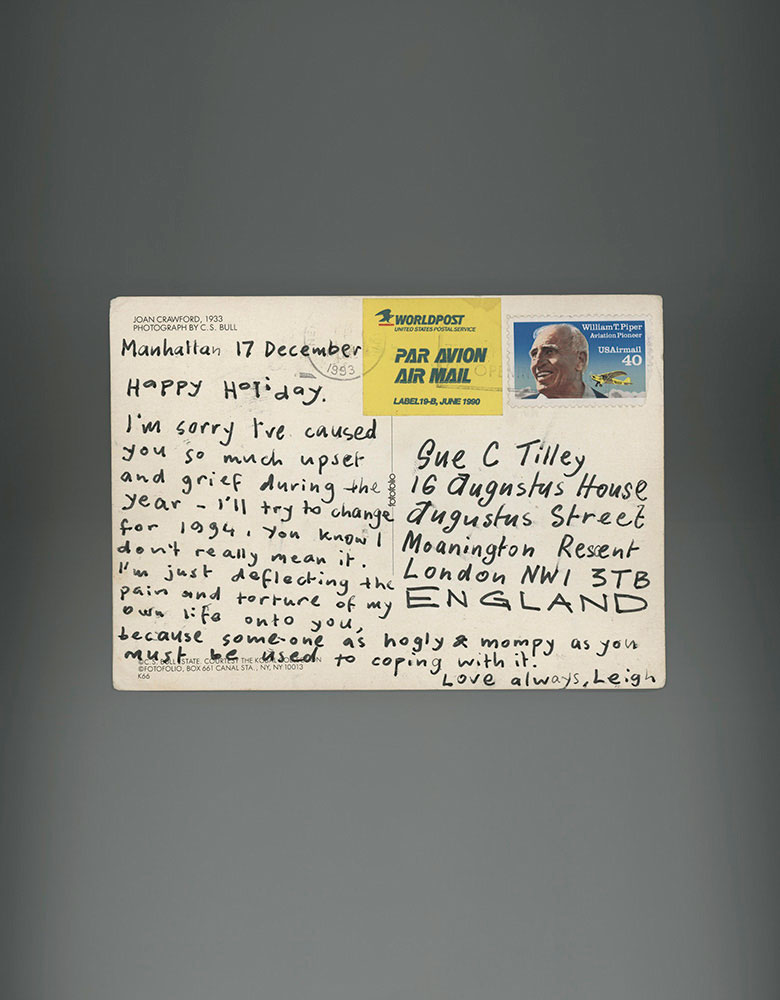 JOAN CRAWFORD, 1933
PHOTOGRAPH BY C.S. BULL
WORLDPOST
UNITED STATES POSTAL SERVICE
PAR AVION
AIR MAIL
LABEL 19-B, JUNE 1990
William T. Piper
Aviation Pioneer
USAirmail
40
1993
Manhattan 17 December
Happy Holiday.
I'm sorry I've caused
you so much upset
and grief during the
year - I'll try to change
for 1994, you know I
don't really mean it.
I'm just deflecting the
pain and torture of my
own life onto you,
because some-one as hogly & mompy as you
must be used to coping with it.
Love always, Leigh
fotofolio
Sue C Tilley
16 Augustus House
Augustus Street
Moanington Resent
London NW1 3TB
ENGLAND
©C.S. BULL ESTATE. COURTESY THE KOBAL
©FOTOFOLIO, BOX 661 CANAL STA., NY, NY 10013
K66